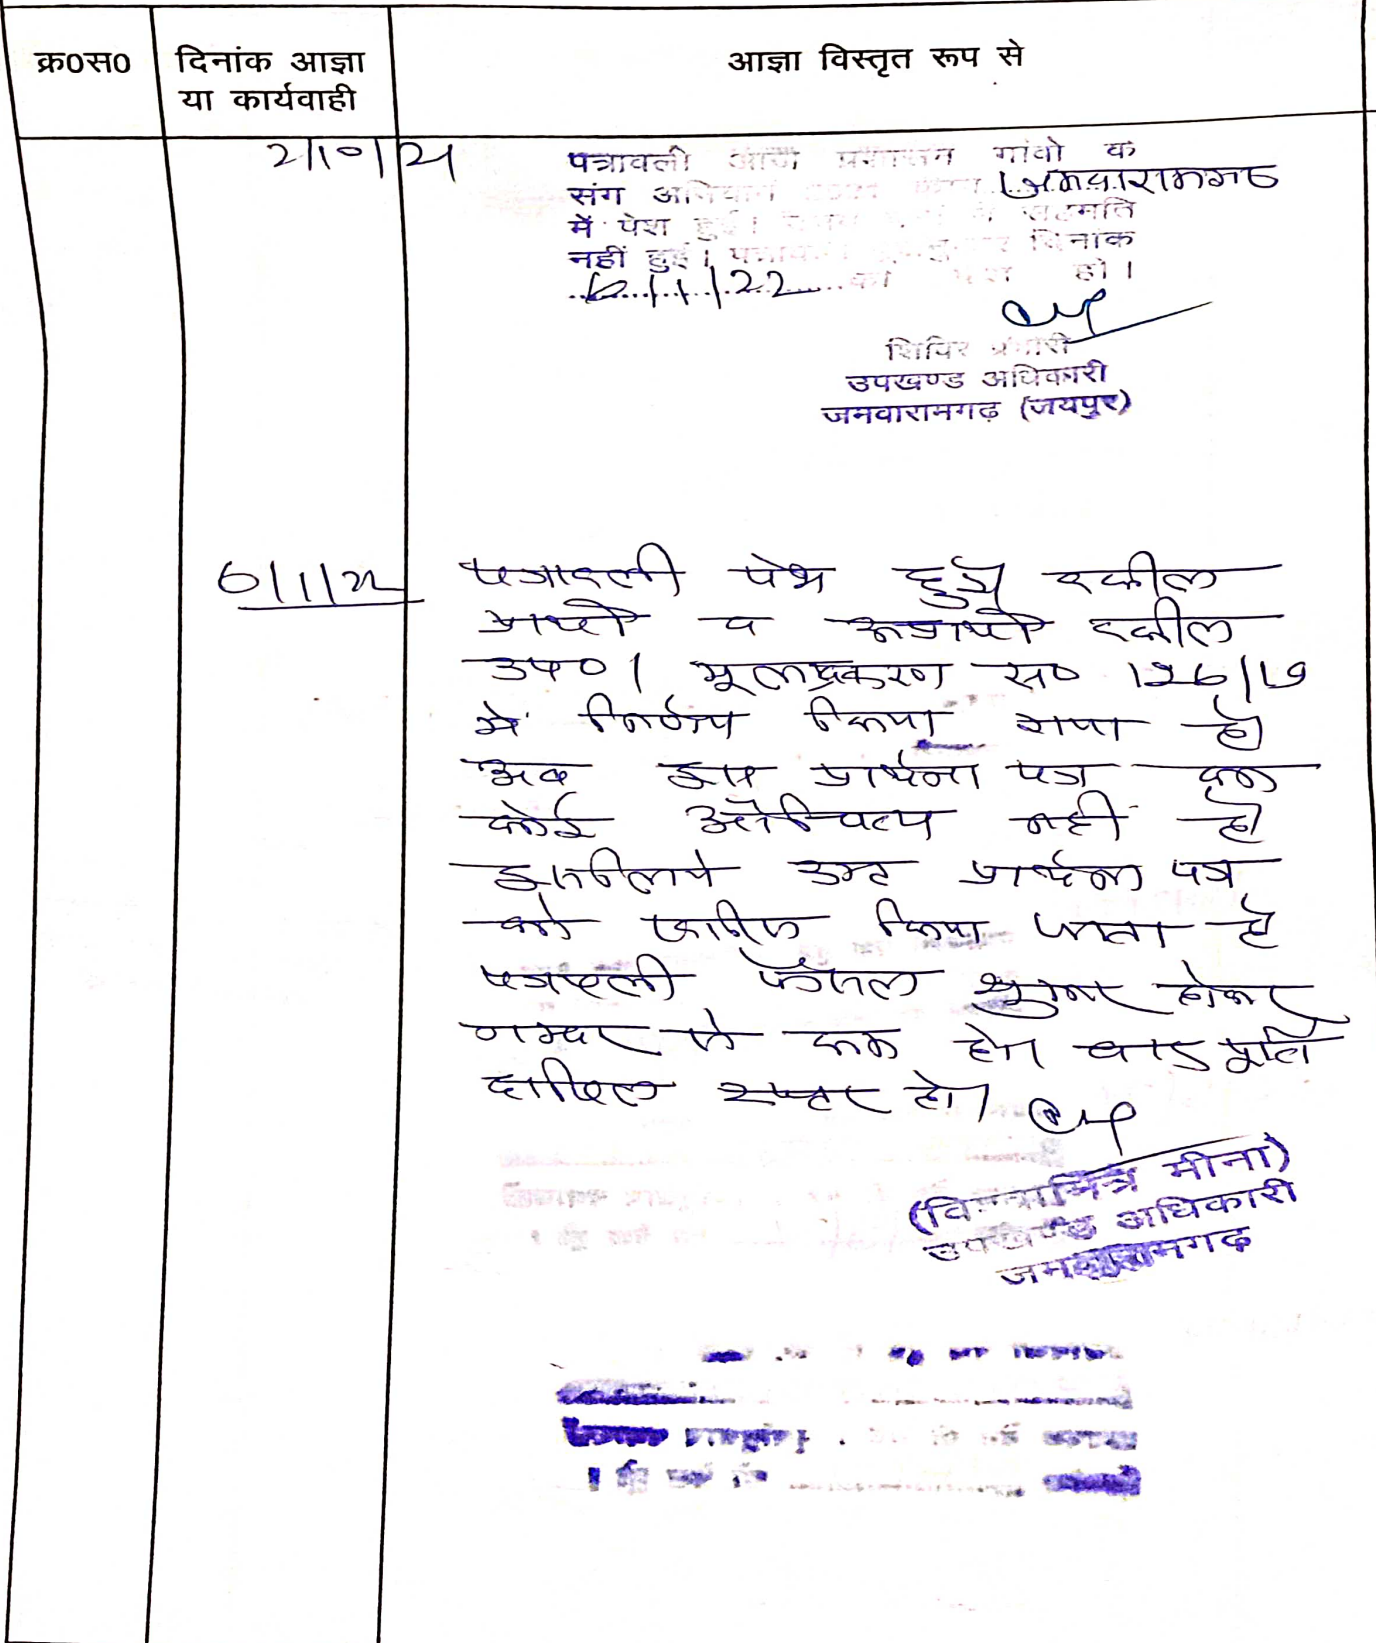 क्र०स०
दिनांक आज्ञा
या कार्यवाही
आज्ञा विस्तृत रूप से
2/10/21
पत्रावली आज प्रशासन गांवो के
संग अभियान जमवारामगढ
में पेश हुई। सहमति
नहीं हुई। दिनांक
6/1/22 को पेश हो।
शिविर प्रभारी
उपखण्ड अधिकारी
जमवारामगढ़ (जयपुर)
6/1/22
पत्रावली पेश हुई वकील
प्रार्थी व अप्रार्थी वकील
उप० । मूलप्रकरण स० 126/19
में निर्णय किया गया है
अब इस प्रार्थना पत्र का
कोई औचित्य नहीं है
इसलिये उक्त प्रार्थना पत्र
को खारिज किया जाता है
पत्रावली फैसल शुमार होकर
नम्बर से कम हो। बाद पूर्ति
दाखिल दफ्तर हो।
(विश्वामित्र मीना)
उपखण्ड अधिकारी
जमवारामगढ़